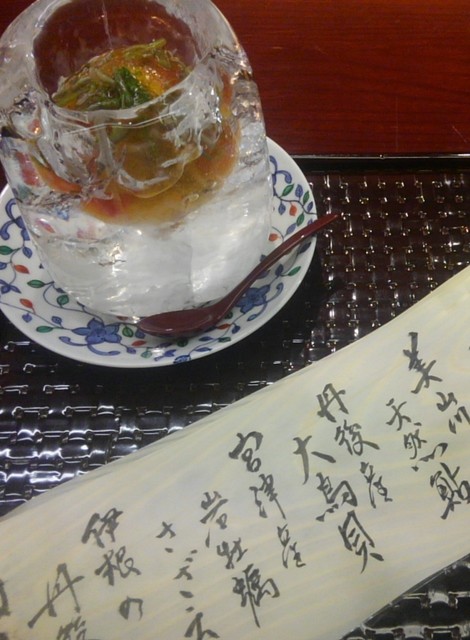 美山川
天然鮎
丹後産
大鳥貝
宮津産
岩牡蠣
さざえ
伊根の
丹後